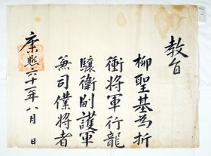 教旨
柳聖基爲折
衝將軍行龍
驤衛副護軍
兼司僕將者
康熙六十一年八月 日